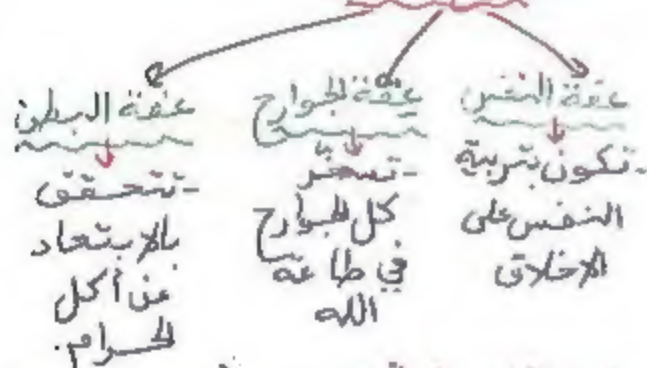 عفة النفس
- تكون بتربية
النفس على
الاخلاق
عفة الجوارح
- تسخر
كل الجوارح
في طاعة
الله
عفة البطن
- تتحقق
بالابتعاد
عن أكل
الحرام.